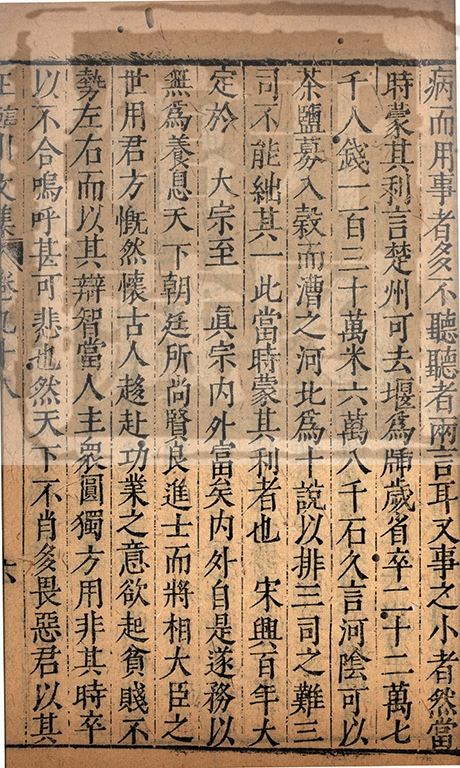 病而用事者多不聽聽者兩言耳又事之小者然當
時蒙其利言楚州可去堰爲牐歲省卒二十二萬七
千人錢一百三十萬米六萬八千石久言河陰可以
茶鹽募入穀而漕之河北爲十說以排三司之難三
司不能絀其一此當時蒙其利者也　宋興百年大
定於　大宗至　眞宗內外富矣內外自是遂務以
無爲養息天下朝廷所尚賢良進士而將相大臣之
世用君方慨然懷古人趍赴功業之意欲起貧賤不
勢左右而以其辯智當人主衆圓獨方用非其時卒
以不合嗚呼甚可悲也然天下不肖多畏惡君以其
王臨川文集　卷九十八　六